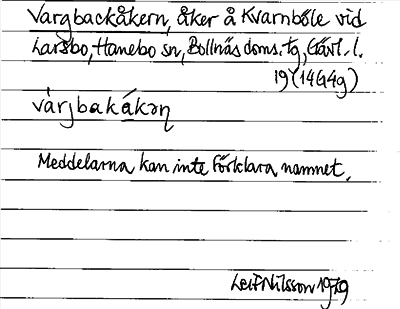 Vargbackåkern, åker å Kvarnböle vid
Larsbo, Hanebo sn, Bollnäs doms. tg, Gävl. l.
19 (14G4g)
vàrjbakákəɳ
Meddelarna kan inte förklara namnet.
Leif Nilsson 1979